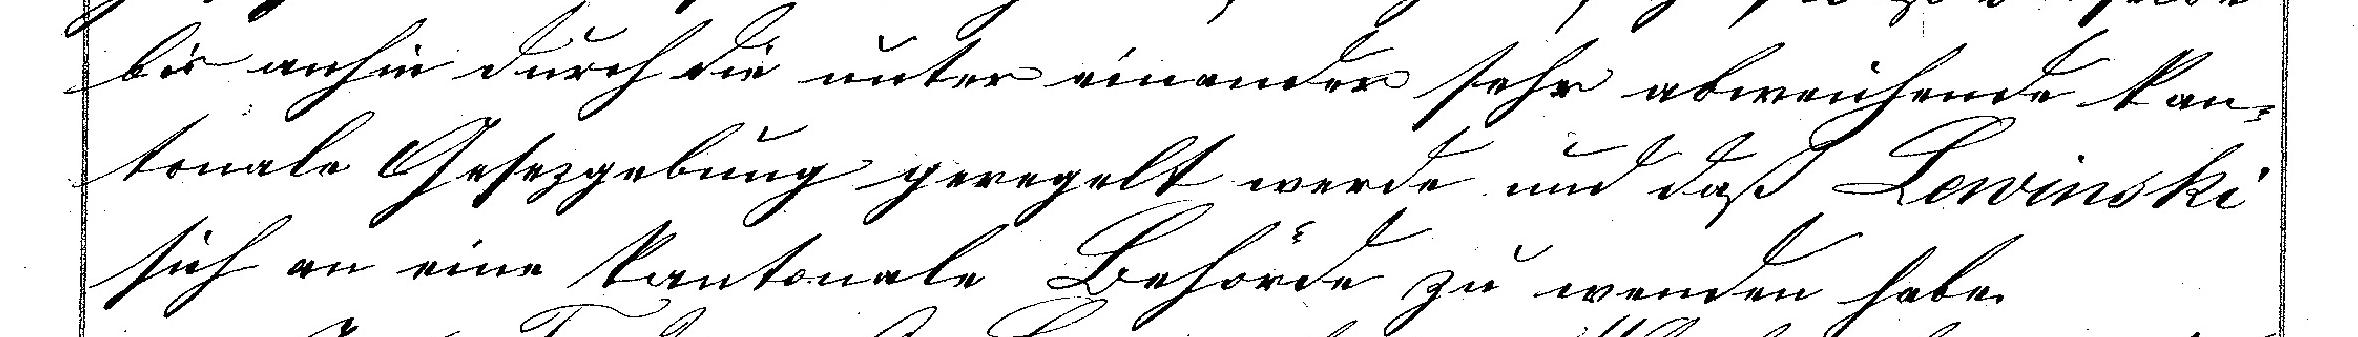 bis anhin durch die unter einander sehr abweichende kan-
tonale Gesezgebung geregelt werde und daß Lewinski
sich an eine kantonale Behörde zu wenden habe.